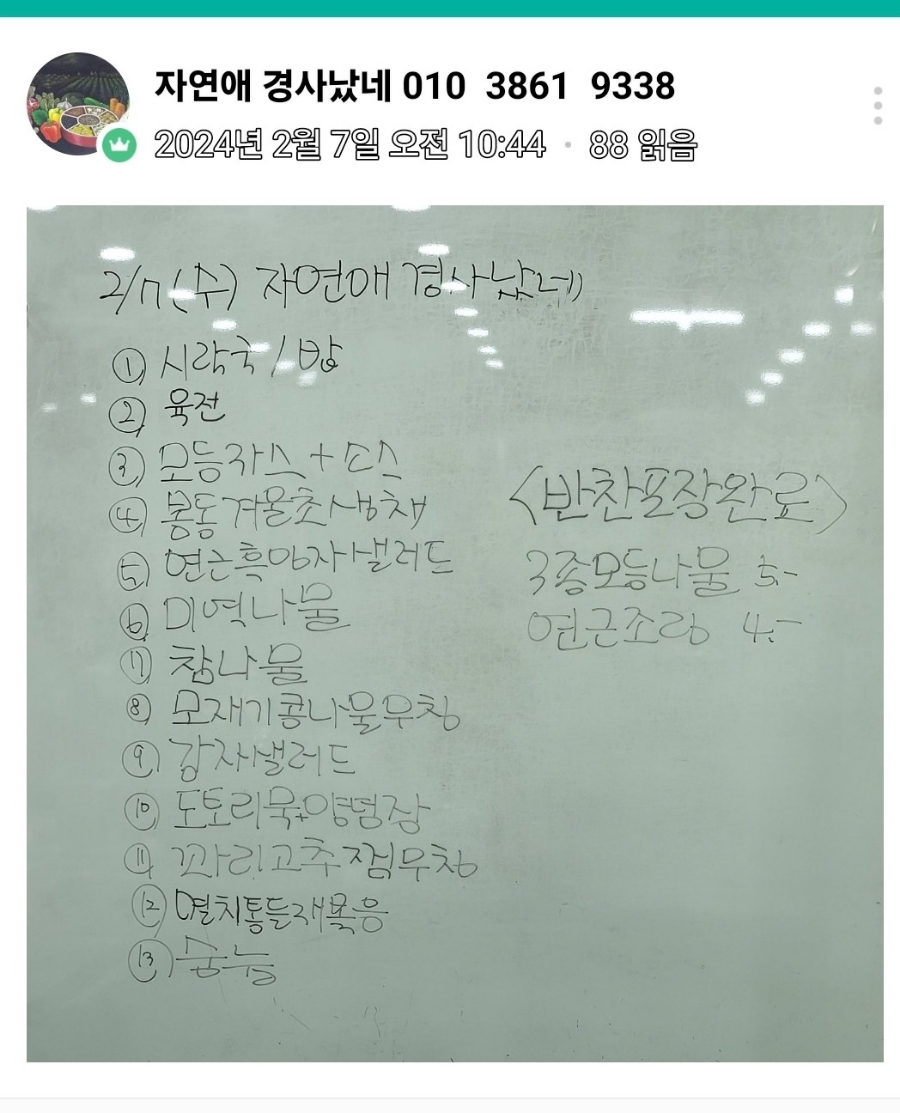 자연애 경사났네 010 3861 9338
2024년 2월 7일 오전 10:44 · 88 읽음
2/7(수) 자연애 경사났네)
① 시락국/밥
② 육전
③ 모듬자스+소스
④ 봉동겨울초생채
⑤ 연근흑임자샐러드
⑥ 미역나물
⑦ 참나물
⑧ 모재기콩나물무침
⑨ 감자샐러드
⑩ 도토리묵+양념장
⑪ 꽈리고추찜무침
⑫ 멸치통들깨볶음
⑬ 숭늉
<반찬포장완료>
3종모듬나물 5.-
연근조림 4.-